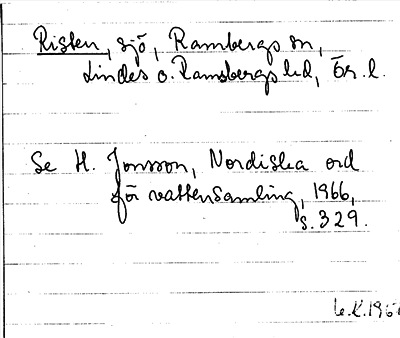 Risten, sjö, Rambergs sn,
Lindes o. Ramsbergs hd, Ör. l.
Se H. Jonsson, Nordiska ord
för vattensamling, 1966,
s. 329.